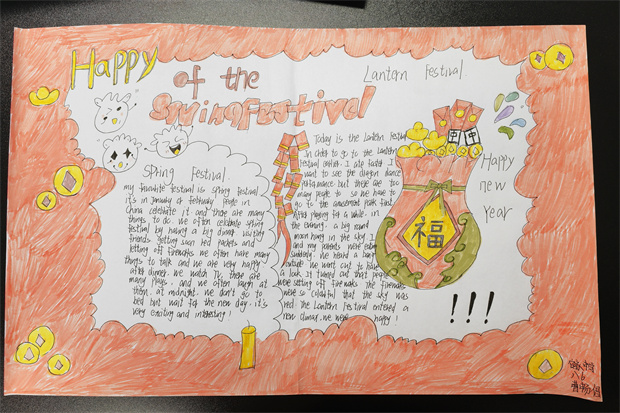 Happy
of the
Spring Festival
Lantern Festival
Spring Festival.
my favorite festival is spring festival.
it's in January or February people in
china celebrate it and they are many
things to do. we often celebrate spring
festival by having a big dinner visiting
friends getting some red packets and
letting off fireworks we often have many
things to talk and we are very happy.
after dinner, we watch TV, there are
many plays. and we often laugh at
them. at midnight. we don't go to
bed but wait for the new day. it's
very exciting and interesting!
Today is the Lantern Festival
in order to go to the Lantern
Festival earlier. I ate faster I
want to see the dragon dance
performance but there are too
many people to so we have to
go to the amusement park first.
After playing for a while. in
the evening. a big round
moon hang in the sky I
and my parents were eating
suddenly. we heard a bang
outside we went out to have
a look It turned out that people
were setting off fireworks the fireworks
were so colorful that the sky was
red the Lantern Festival entered a
new climax. we were happy!
福
Happy
new
Year
!!!
八6